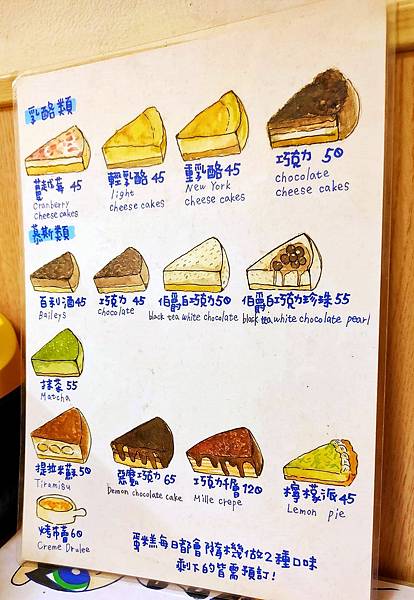 乳酪類
蔓越莓 45
Cranberry
cheese cakes
輕乳酪 45
light
cheese cakes
重乳酪 45
New York
cheese cakes
巧克力 50
chocolate
cheese cakes
慕斯類
百利酒 45
Baileys
巧克力 45
chocolate
伯爵白巧克力 50
black tea white chocolate
伯爵白巧克力珍珠 55
black tea white chocolate pearl
抹茶 55
Matcha
提拉米蘇 50
Tiramisu
惡魔巧克力 65
Demon chocolate cake
巧克力千層 120
Mille crepe
檸檬派 45
Lemon pie
烤布蕾 60
Creme Drulee
蛋糕每日都會隨機做2種口味
剩下的皆需預訂!